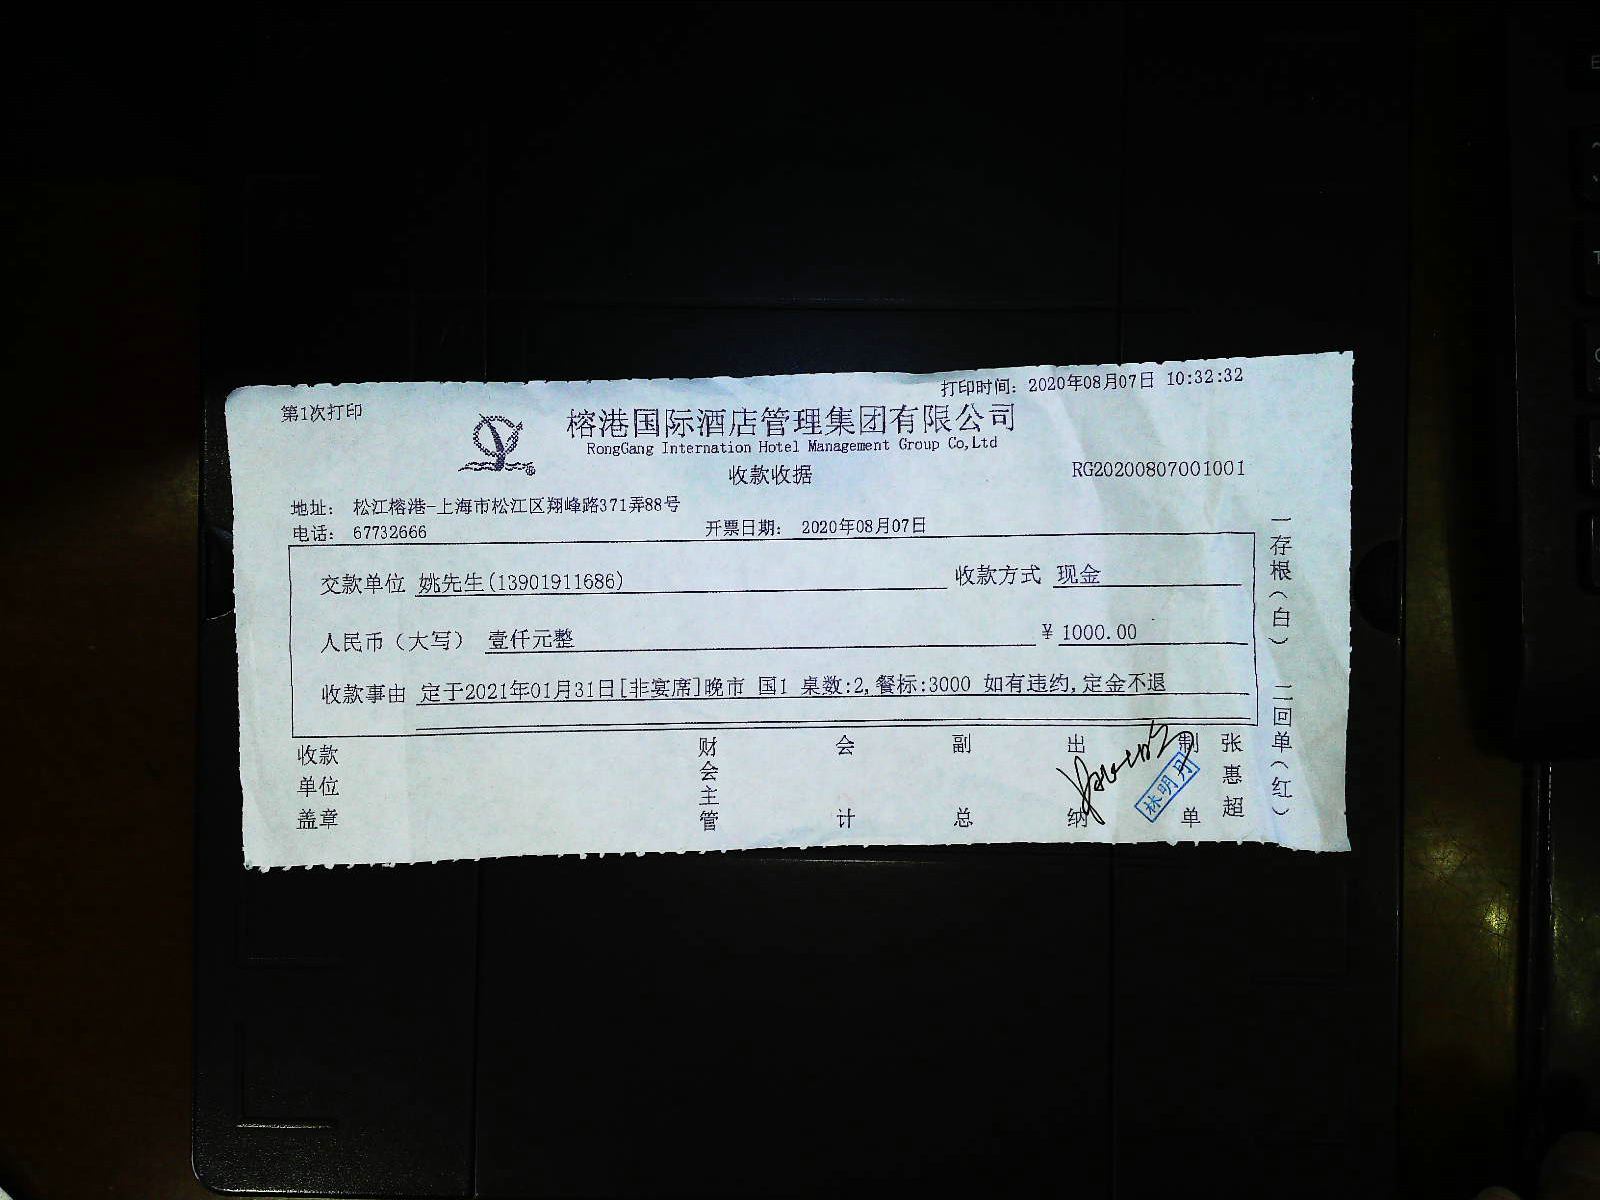 第1次打印
打印时间: 2020年08月07日 10:32:32
榕港国际酒店管理集团有限公司
RongGang Internation Hotel Management Group Co,Ltd
收款收据
RG20200807001001
地址: 松江榕港-上海市松江区翔峰路371弄88号
电话: 67732666
开票日期: 2020年08月07日
交款单位 姚先生(13901911686)
收款方式 现金
人民币(大写) 壹仟元整
¥ 1000.00
收款事由 定于2021年01月31日[非宴席]晚市 国1 桌数:2,餐标:3000 如有违约,定金不退
收款单位盖章
财会主管
会计
副总
出纳
林明丹
制单
张惠超
一存根(白)
二回单(红)